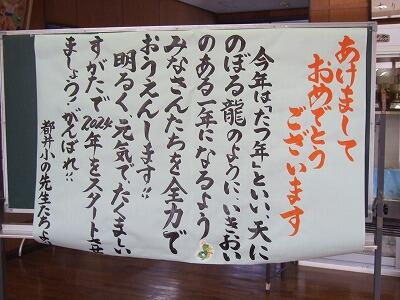 あけまして
おめでとう
ございます
今年は「たつ年」といい、天に
のぼる龍のように、いきおい
のある一年になるよう
みなさんたちを全力で
おうえんします!!
明るく、元気で、たくましい
すがたで2024年をスタートし
ましょう!がんばれ!!
都井小の先生たちより